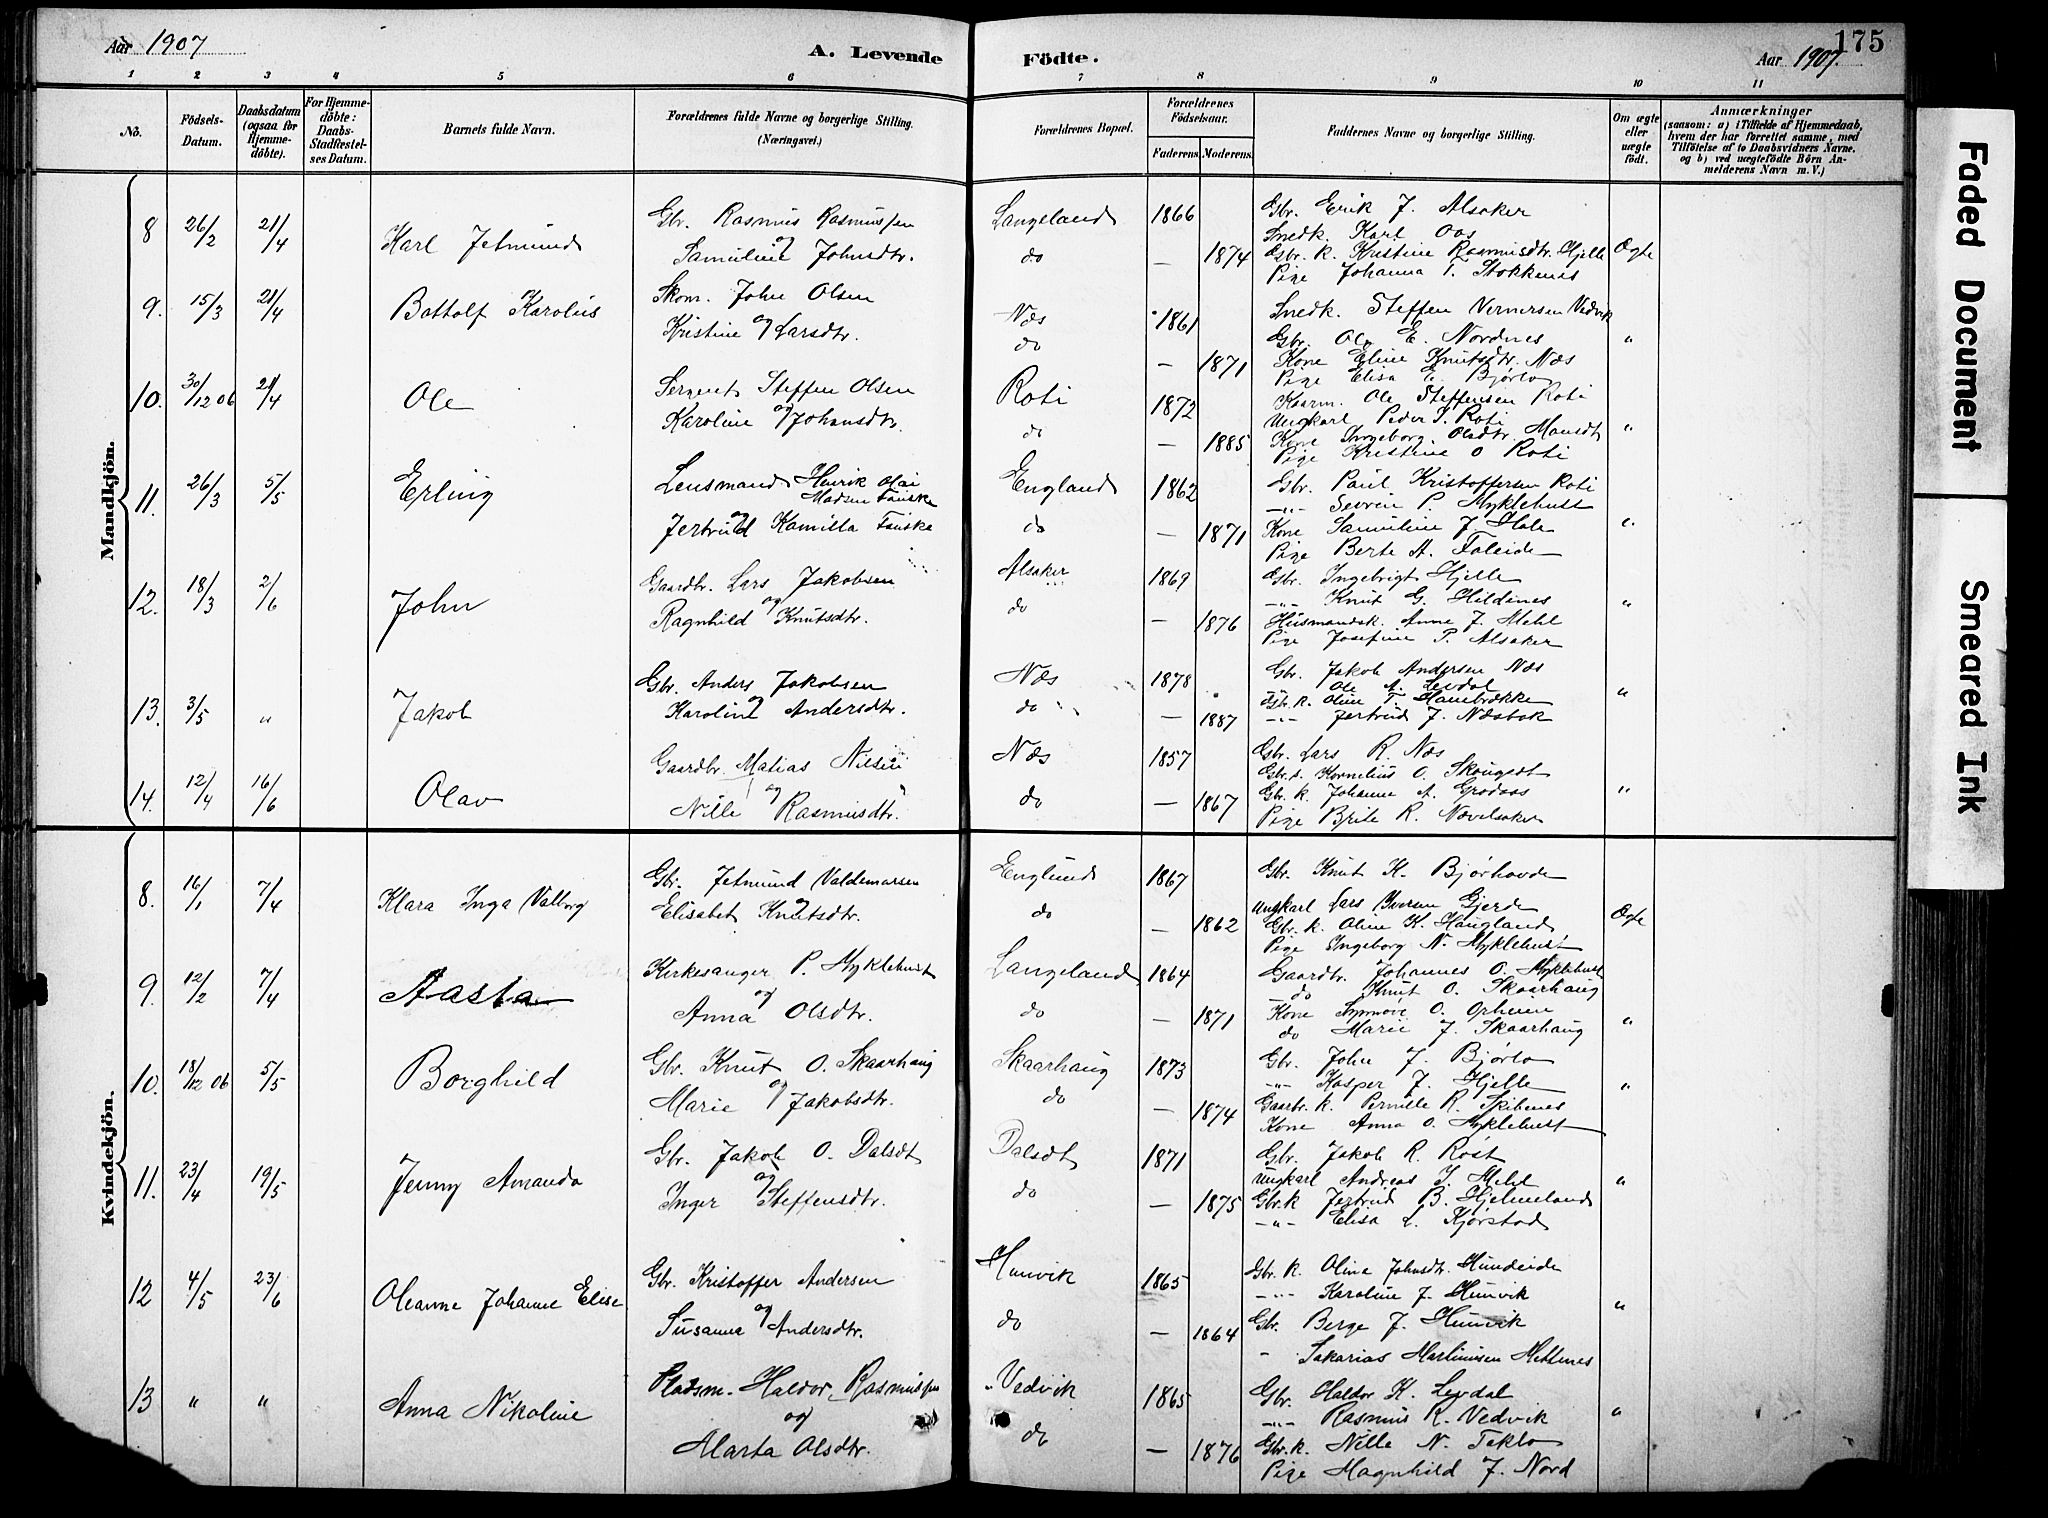 Aar 1907
A. Levende
Födte.
175
Aar 1907.
1 2 3 4 5 6 7 8 9 10 11
No.
Födsels-
Datum.
Daabsdatum
(ogsaa for
Hjemme-
döbte).
For Hjemme-
döbte:
Daabs-
Stadfæstel-
ses Datum.
Barnets fulde Navn.
Forældrenes fulde Navne og borgerlige Stilling.
(Næringsvei.)
Forældrenes Bopæl.
Forældrenes
Födselsaar.
Faderens. Moderens.
Faddernes Navne og borgerlige Stilling.
Om ægte
eller
uægte
født.
Anmærkninger
(saasom: a) i Tilfælde af Hjemmedaab,
hvem der har forrettet samme, med
Tilföielse af to Daabsvidners Navne,
og b) ved uægtefödte Börn An-
melderens Navn m. V.)
Mandkjön.
8 26/2 21/4 Karl Jetmund
Gbr. Rasmus Rasmussen
og
Samuline Johnsdtr.
Langeland
do
1866
— 1874
Gbr. Erik J. Alsaker
Snedk. Karl Aas
Gbr. k. Kristine Rasmusdtr. Hjelle
Pige Johanna T. Stokkenes
Ægte
9. 15/3 21/4 Botholf Karolus
Skom. John Olsen
Kristine og Larsdtr.
Næs
do
1861
— 1871
Snedk. Steffen Vernersen Vedvik
Gbr. Ole E. Nordnes
Kone Eline Knutsdtr. Næs
Pige Elisa E. Bjørlo
"
10. 30/12 06 21/4 Ole
Sergeant Steffen Olsen
og
Karoline Johansdtr.
Roti
do
1872
— 1885
Kaarm. Ole Steffensen Roti
Ungkarl Peder S. Roti
Kone Ingeborg Olsdtr. Mansdt
Pige Kristine O Roti
"
11. 26/3 5/5 Erling
Lensmand Henrik Olai
Madsen Fauske
og
Jertrud Kamilla Fauske
England
do
1862
— 1871
Gbr. Paul Kristoffersen Roti
—"— Severin P. Myklebust
Kone Samuline J. Hole
Pige Berte A. Faleide
"
12. 18/3 2/6 John
Gaardbr. Lars Jakobsen
og
Ragnhild Knutsdtr.
Alsaker
do
1869
— 1876
Gbr. Ingebrigt Hjelle
—"— Knut G. Hildenes
Husmandsk. Anne J. Mehl
Pige Josefine P. Alsaker
"
13. 3/5 " Jakob
Gbr. Anders Jakobsen
og
Karoline Andersdtr.
Næs
do
1878
— 1887
Gbr. Jakob Andersen Næs
Ole A. Levdal
Gbr. k. Oline T. Hanebrække
—"— Jertrud J. Næsbak
"
14. 12/4 16/6 Olav
Gaardbr. Matias Nilsen
og
Nille Rasmusdtr.
Næs
do
1857
— 1867
Gbr. Lars R. Næs
Gbr. s. Kornelius O. Skougedt
Gbr. k. Johanne A. Grodaas
Pige Brite R. Navelsaker
"
Kvindekjön.
8. 16/1 7/4 Klara Inga Valborg
Gbr. Jetmund Valdemarsen
og
Elisabet Knutsdtr.
Englund
do
1867
— 1862
Gbr. Knut K. Bjørhovde
Ungkarl Lars Iversen Gjerde
Gbr. k. Oline K. Haugland
Pige Ingeborg N. Myklebust
Ægte
9. 12/2 7/4 Aasta
Kirkesanger P. Myklebust
og
Anna Olsdtr.
Langeland
do
1864
— 1871
Gaardbr. Johannes O. Myklebust
—do Knut O. Skaarhaug
Kone Synnove O. Opheim
do Marie J. Skaarhaug
"
10. 18/12 06 5/5 Borghild
Gbr. Knut O. Skaarhaug
og
Marie Jakobsdtr.
Skaarhaug
do
1873
— 1874
Gbr. John J. Bjørlo
—"— Kasper J. Hjelle
Gaarbr. k. Pernille R. Skibenes
Kone Anna O. Myklebust
"
11. 23/4 19/5 Jenny Amanda
Gbr. Jakob O. Dalsdt
og
Inger Steffensdtr.
Dalsdt
do
1871
— 1875
Gbr. Jakob R. Røst
Ungkarl Andreas J. Mehl
Gbr. k Jertrud B. Hjelmeland
—"— Elisa L. Kjørstad
"
12 4/5 23/6 Oleanne Johanne Elise
Gbr. Kristoffer Andersen
og
Susanna Andersdtr.
Hunvik
do
1865
— 1864
Gbr. k. Olina Johnsdtr. Hundeide
—"— Karoline J. Hunvik
Gbr. Berge J. Hunvik
" Sakarias Martinusen Mettenes
"
13 " " Anna Nikoline
Pladsm. Haldor Rasmussen
og
Marta Olsdtr.
Vedvik
do
1865
— 1876
Gbr. Haldor K. Levdal
—"— Rasmus R. Vedvik
Gbr. k. Nille N. Teklo
Pige Magnhild J. Nord
"
Faded Document
Smeared Ink